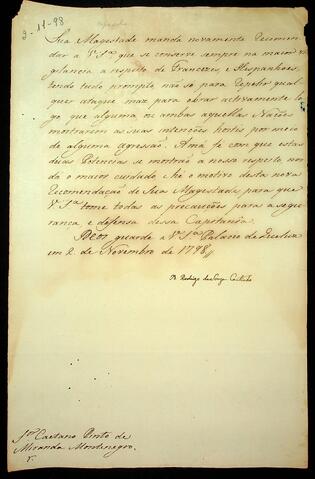 2-11-98
Sua Magestade manda novamente Recomen-
dar a V.ª S.ª que se conserve sempre na maior vi-
gilancia a respeito de Francezes, e Hespanhoes,
tendo tudo prompto não só para repelir qual-
quer ataque maz para obrar activamente lo-
go que alguma ou ambas aquellas Naçoes
mostrarem as suas intenções hostis por meio
de alguma agressão. A má fé com que estas
duas Potencias se mostrão a nosso respeito nos
dá o maior cuidado e hé o motivo desta nova
Recomendação de Sua Magestade para que
V.ª S.ª tome todas as precauções para a segu-
rança e defensa dessa Capitania.
Deos guarde a V.ª S.ª Palacio de Queluz
em 2 de Novembro de 1798 //
D. Rodrigo de Souza Coutinho
S.or Caetano Pinto de
Miranda Montenegro.